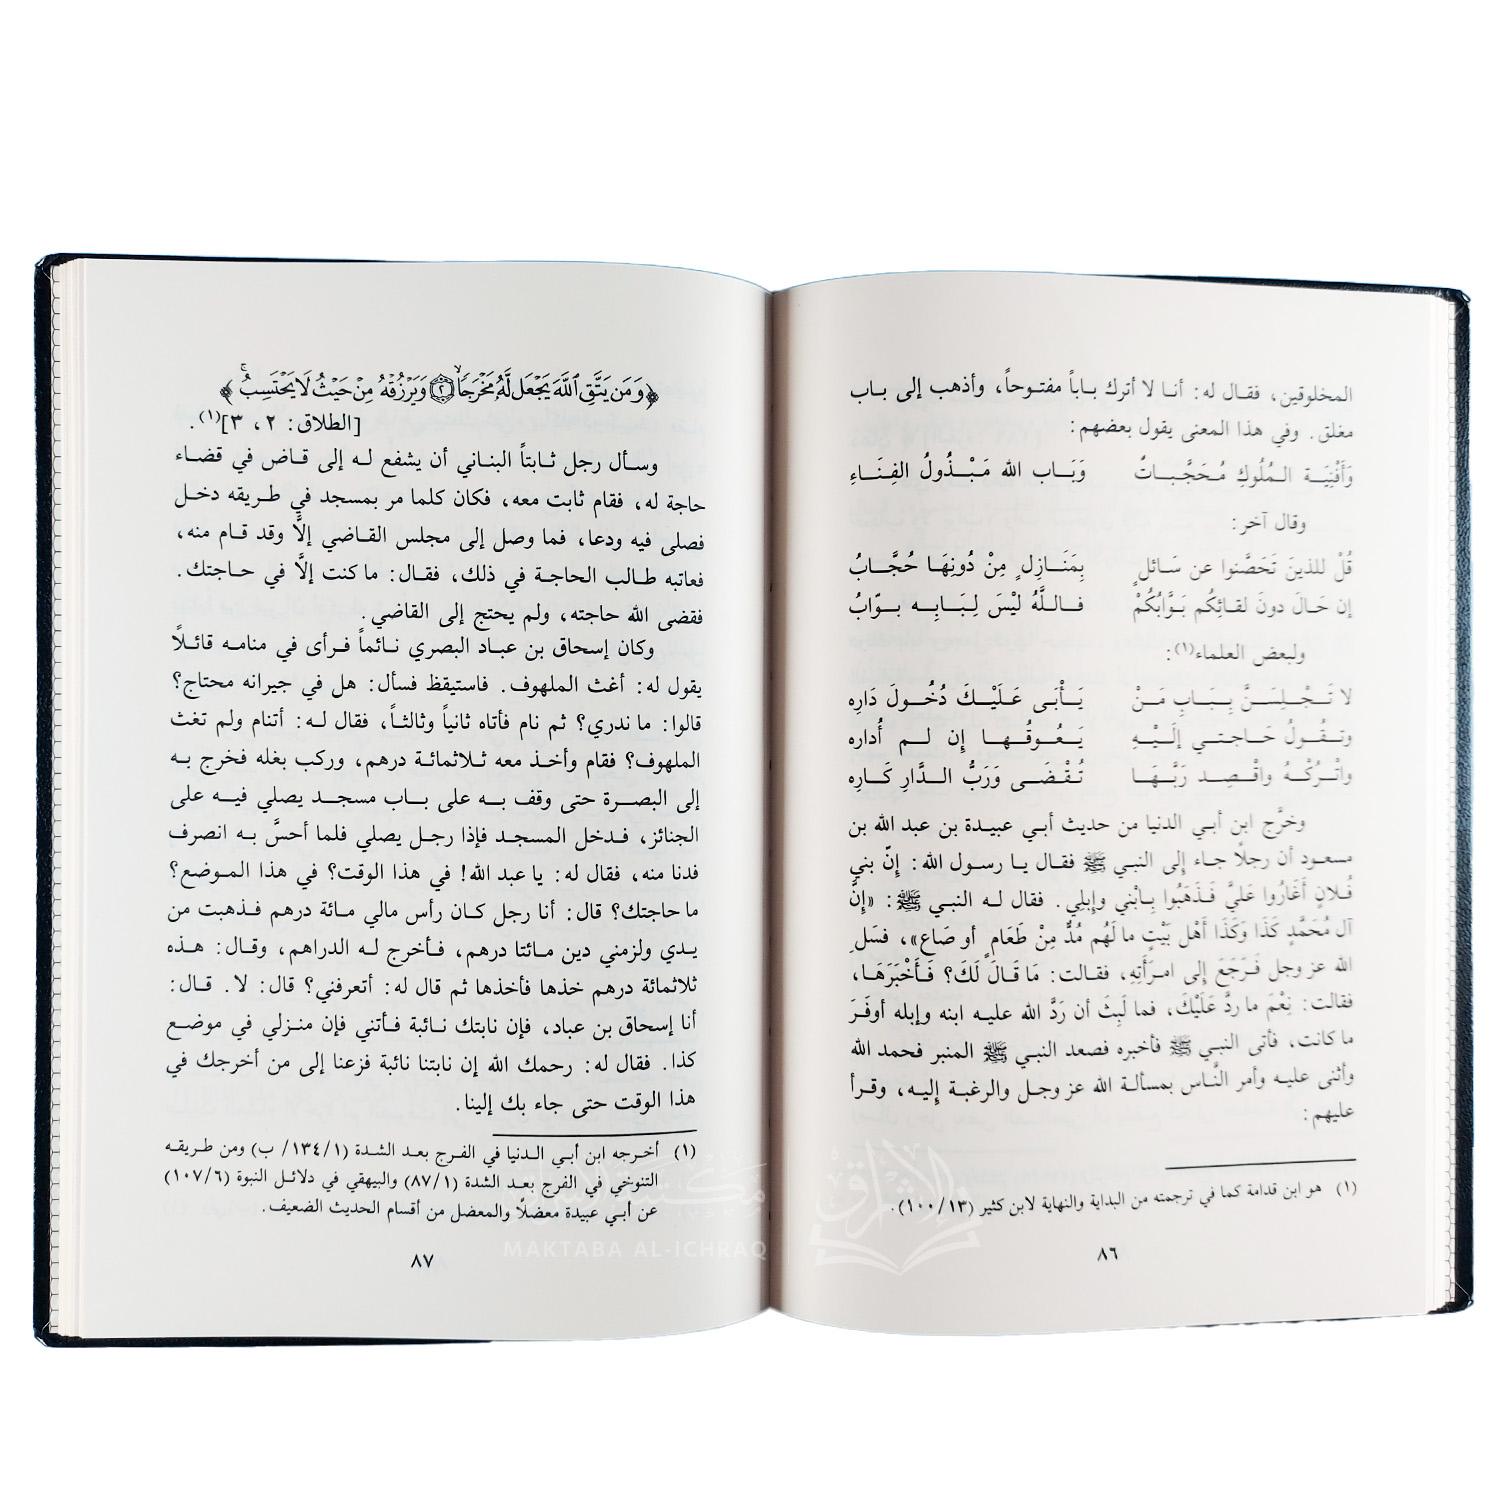 المخلوقين، فقال له: أنا لا أترك باباً مفتوحاً، وأذهب إلى باب
مغلق. وفي هذا المعنى يقول بعضهم:
وَأَفْنِيَة المُلُوكِ مُحَجَّباتٌ وَبَاب الله مَبْذُولُ الفِنَاءِ
وقال آخر:
قُلْ للذينَ تَحَصَّنوا عن سَائلٍ بِمَنَازِلٍ مِنْ دُونِهَا حُجَّابُ
إن حَالَ دونَ لقائِكُم بَوَّابُكُمْ فاللَّهُ لَيْسَ لِبَابِهِ بوّابُ
ولبعض العلماء(١):
لا تَجْلِسَنَّ بِبَابِ مَنْ يَأْبَى عَلَيْكَ دُخُولَ دَارِه
وتقُولُ حَاجتي إلَيْهِ يَعُوقُها إن لم أُداره
واتْرُكْهُ واقْصِد رَبَّهَا تُقْضَى وَرَبُّ الدَّارِ كَارِه
وخرَّج ابن أبي الدنيا من حديث أبي عبيدة بن عبد الله بن
مسعود أن رجلًا جاء إلى النبي ﷺ فقال يا رسول الله: إنّ بني
فُلانٍ أغَارُوا عَليَّ فَذَهبُوا بِابْني وإبِلي. فقال له النبي ﷺ: «إنَّ
آل مُحَمَّدٍ كَذَا وَكَذَا أهْل بَيْتٍ ما لَهُم مُدٌّ مِنْ طَعَامٍ أو صَاع»، فسَلِ
الله عز وجل فَرَجَعَ إلى امرَأَتِهِ، فقالت: مَا قَالَ لَكَ؟ فَأَخْبَرَهَا،
فقالت: نِعْمَ ما ردَّ عَلَيْكَ، فما لَبِثَ أن رَدَّ الله عليه ابنه وإبله أوفَرَ
ما كانت، فأتى النبي ﷺ فأخبره فصعد النبي ﷺ المنبر فحمد الله
وأثنى عليه وأمر النَّاس بمسألة الله عز وجل والرغبة إليه، وقرأ
عليهم:
(١) هو ابن قدامة كما في ترجمته من البداية والنهاية لابن كثير (١٠٠/١٣).
٨٦
﴿وَمَن يَتَّقِ ٱللَّهَ يَجْعَل لَّهُۥ مَخْرَجًا ۝٢ وَيَرْزُقْهُ مِنْ حَيْثُ لَا يَحْتَسِبُ﴾
[الطلاق: ٢، ٣](١).
وسأل رجل ثابتاً البناني أن يشفع له إلى قاض في قضاء
حاجة له، فقام ثابت معه، فكان كلما مر بمسجد في طريقه دخل
فصلى فيه ودعا، فما وصل إلى مجلس القاضي إلَّا وقد قام منه،
فعاتبه طالب الحاجة في ذلك، فقال: ما كنت إلَّا في حاجتك.
فقضى الله حاجته، ولم يحتج إلى القاضي.
وكان إسحاق بن عباد البصري نائماً فرأى في منامه قائلًا
يقول له: أغث الملهوف. فاستيقظ فسأل: هل في جيرانه محتاج؟
قالوا: ما ندري؟ ثم نام فأتاه ثانياً وثالثاً، فقال له: أتنام ولم تغث
الملهوف؟ فقام وأخذ معه ثلاثمائة درهم، وركب بغله فخرج به
إلى البصرة حتى وقف به على باب مسجد يصلي فيه على
الجنائز، فدخل المسجد فإذا رجل يصلي فلما أحسَّ به انصرف
فدنا منه، فقال له: يا عبد الله! في هذا الوقت؟ في هذا الموضع؟
ما حاجتك؟ قال: أنا رجل كان رأس مالي مائة درهم فذهبت من
يدي ولزمني دين مائتا درهم، فأخرج له الدراهم، وقال: هذه
ثلاثمائة درهم خذها فأخذها ثم قال له: أتعرفني؟ قال: لا. قال:
أنا إسحاق بن عباد، فإن نابتك نائبة فأتني فإن منزلي في موضع
كذا. فقال له: رحمك الله إن نابتنا نائبة فزعنا إلى من أخرجك في
هذا الوقت حتى جاء بك إلينا.
(١) أخرجه ابن أبي الدنيا في الفرج بعد الشدة (١/١٣٤/ ب) ومن طريقه
التنوخي في الفرج بعد الشدة (٨٧/١) والبيهقي في دلائل النبوة (١٠٧/٦)
عن أبي عبيدة معضلًا والمعضل من أقسام الحديث الضعيف.
٨٧
مكتبة الإشراق
MAKTABA AL-ICHRAQ